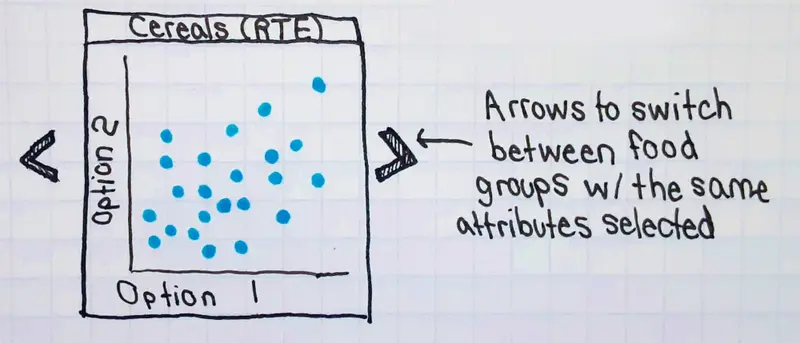 Cereals (RTE)
Option 2
Option 1
Arrows to switch
between food
groups w/ the same
attributes selected